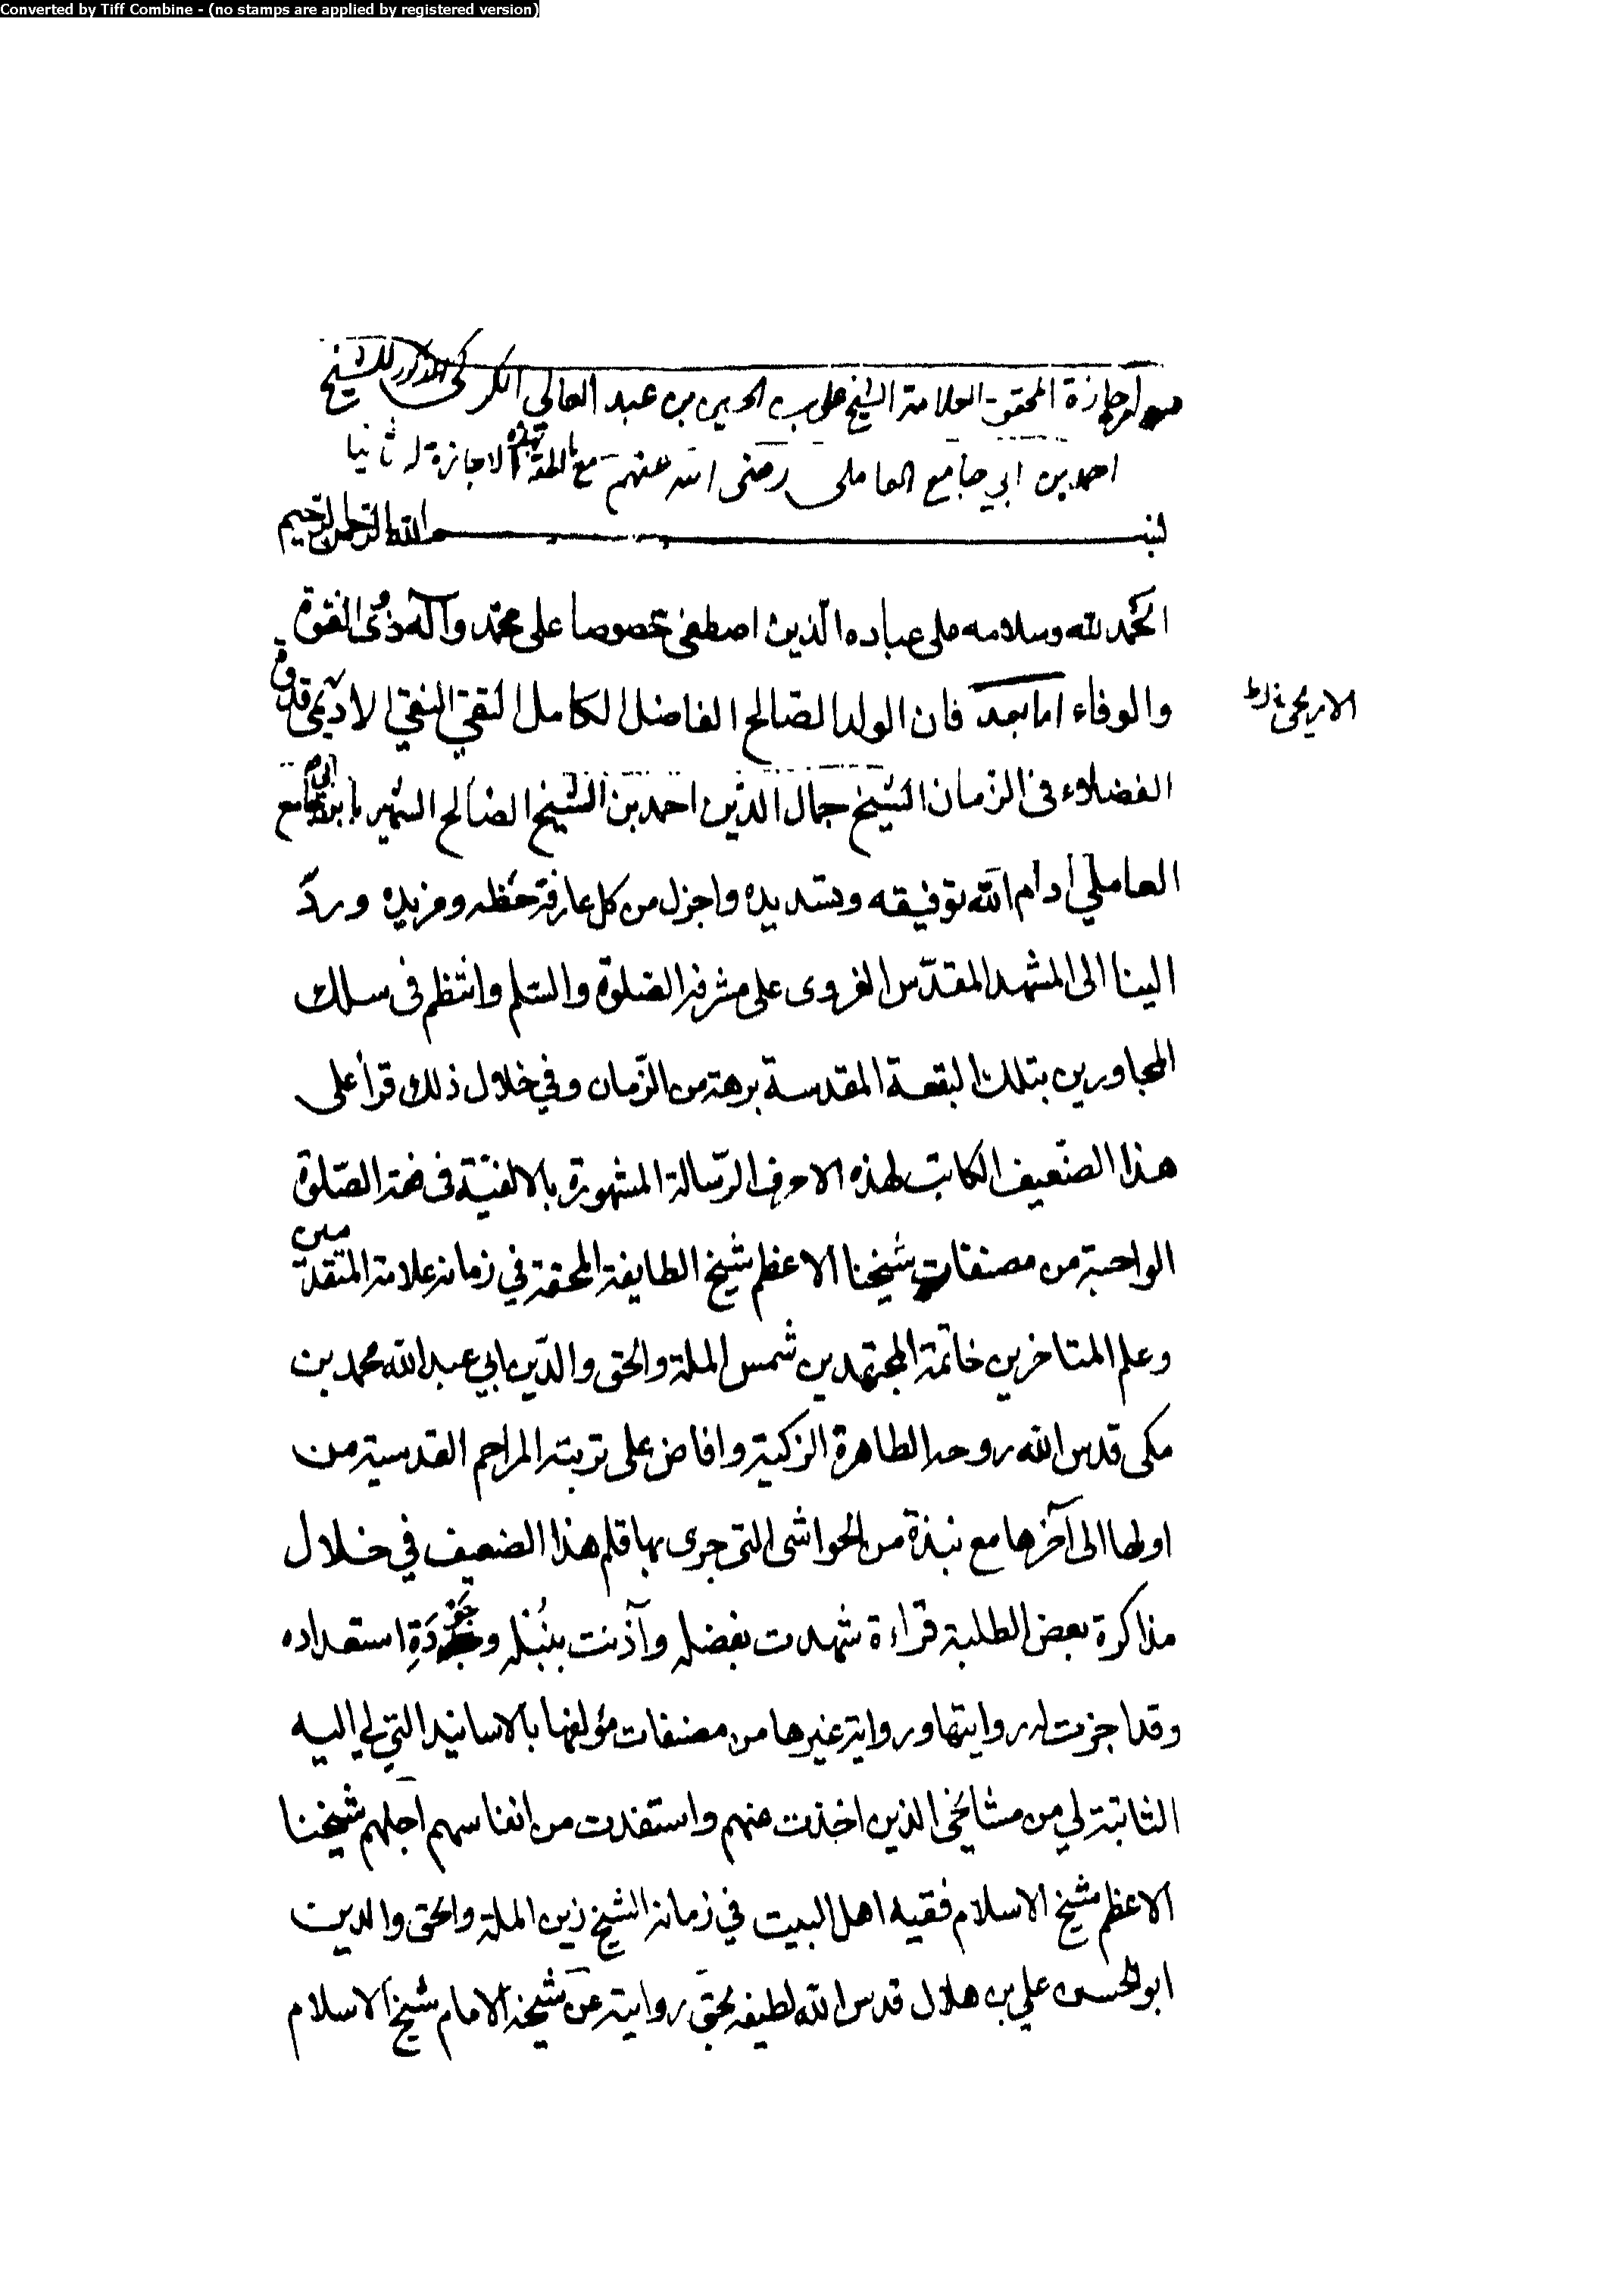 Converted by Tiff Combine - (no stamps are applied by registered version)
اجازة المحقق العلامة الشيخ علي بن الحسين بن عبد العالي الكركي المذكور للشيخ
احمد بن ابي جامع العاملى رضى الله عنهم مع الاجازة له ثانيا
بسم الله الرحمن الرحيم
الحمد لله وسلامه على عباده الّذين اصطفى خصوصا على محمّد وآله ذوى الفتوة
والوفاء اما بعد فان الولد الصّالح الفاضل الكامل التقيّ النقيّ قدوة
الاريحى
الفضلاء فى الزمان الشيخ جمال الدّين احمد بن الشّيخ الصّالح الشهير بابن ابي جامع
العاملي ادام الله توفيقه وتسديده واجزل من كل عارفة حظه ومزيده وردّ
الينا الى المشهد المقدّس الغروى على مشرفه الصّلوة والسّلم وانتظم فى سلك
المجاورين بتلك البقعة المقدسة برهة من الزّمان وفي خلال ذلك قرأ على
هذا الضّعيف الكاتب لهذه الاحرف الرّسالة المشهورة بالالفيّة فى فقه الصّلوة
الواجبة من مصنفات شيخنا الاعظم شيخ الطايفة المحقة في زمانه علامة المتقدمين
وعلم المتاخرين خاتمة المجتهدين شمس الملة والحق والدّين ابي عبد الله محمد بن
مكى قدس الله روحه الطاهرة الزكية وافاض على تربته المراحم القدسية من
اولها الى آخرها مع نبذة من الحواشى التى جرى بها قلم هذا الضعيف في خلال
مذاكرة بعض الطلبة قراءة شهدت بفضله وآذنت بنُبله وجَودَةِ استعداده
وقد اجزت له روايتها ورواية غيرها من مصنفات مؤلفها بالاسانيد التي لي اليه
الثابتة لي من مشايخى الذين اخذت عنهم واستفدت من انفاسهم اجلهم شيخنا
الاعظم شيخ الاسلام فقيه اهل البيت في زمانه الشيخ زين الملة والحق والدين
ابو الحسن علي بن هلال قدس الله لطيفه بحق روايته عن شيخه الامام شيخ الاسلام